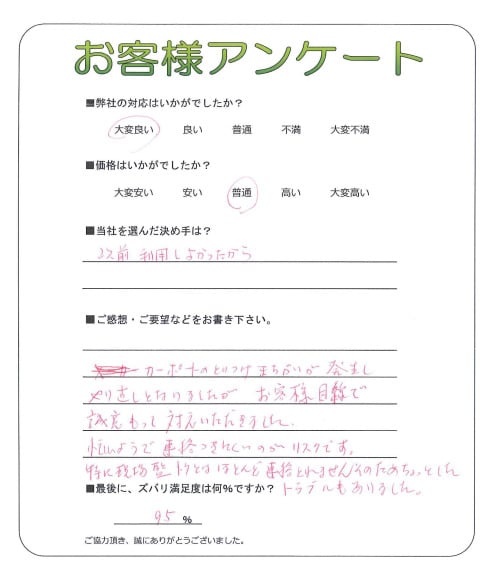 お客様アンケート
■弊社の対応はいかがでしたか?
大変良い 良い 普通 不満 大変不満
■価格はいかがでしたか?
大変安い 安い 普通 高い 大変高い
■当社を選んだ決め手は?
以前利用しよかったから
■ご感想・ご要望などをお書き下さい。
カーポートのとりつけまちがいが発生し
やり直しとなりましたが お客様目線で
誠意もって対応いただきました。
忙しいようで連絡つきにくいのがリスクです。
特に現場監トクとはほとんど連絡とれません(そのためちょっとした
■最後に、ズバリ満足度は何%ですか? トラブルもありました。
95 %
ご協力頂き、誠にありがとうございました。